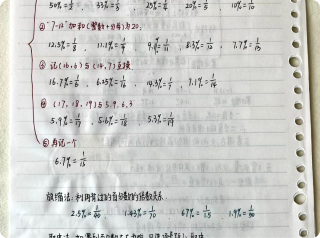 50%=1/2 33%=1/3 25%=1/4 20%=1/5 10%=1/10
② "7-12"加和(整数+分母)为20.
12.5%=1/8 11.1%=1/9 9.1%=1/11 8.3%=1/12 7.7%=1/13
③ 记(16,6)与(14,7)互换
16.7%=1/6 6.25%=1/16 14.3%=1/7 7.1%=1/14
④ (17,18,19)与5.9.6.3
5.9%=1/17 5.6%=1/18 5.3%=1/19
⑤ 再记一个
6.7%=1/15
放缩法:利用
2.5%=1/40 1.43%=1/70 67%=1/1.5 1.9%=